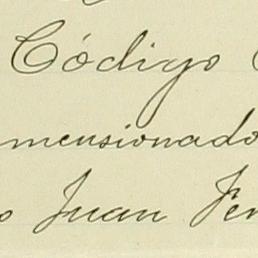 Código
mensionado
o Juan Fer